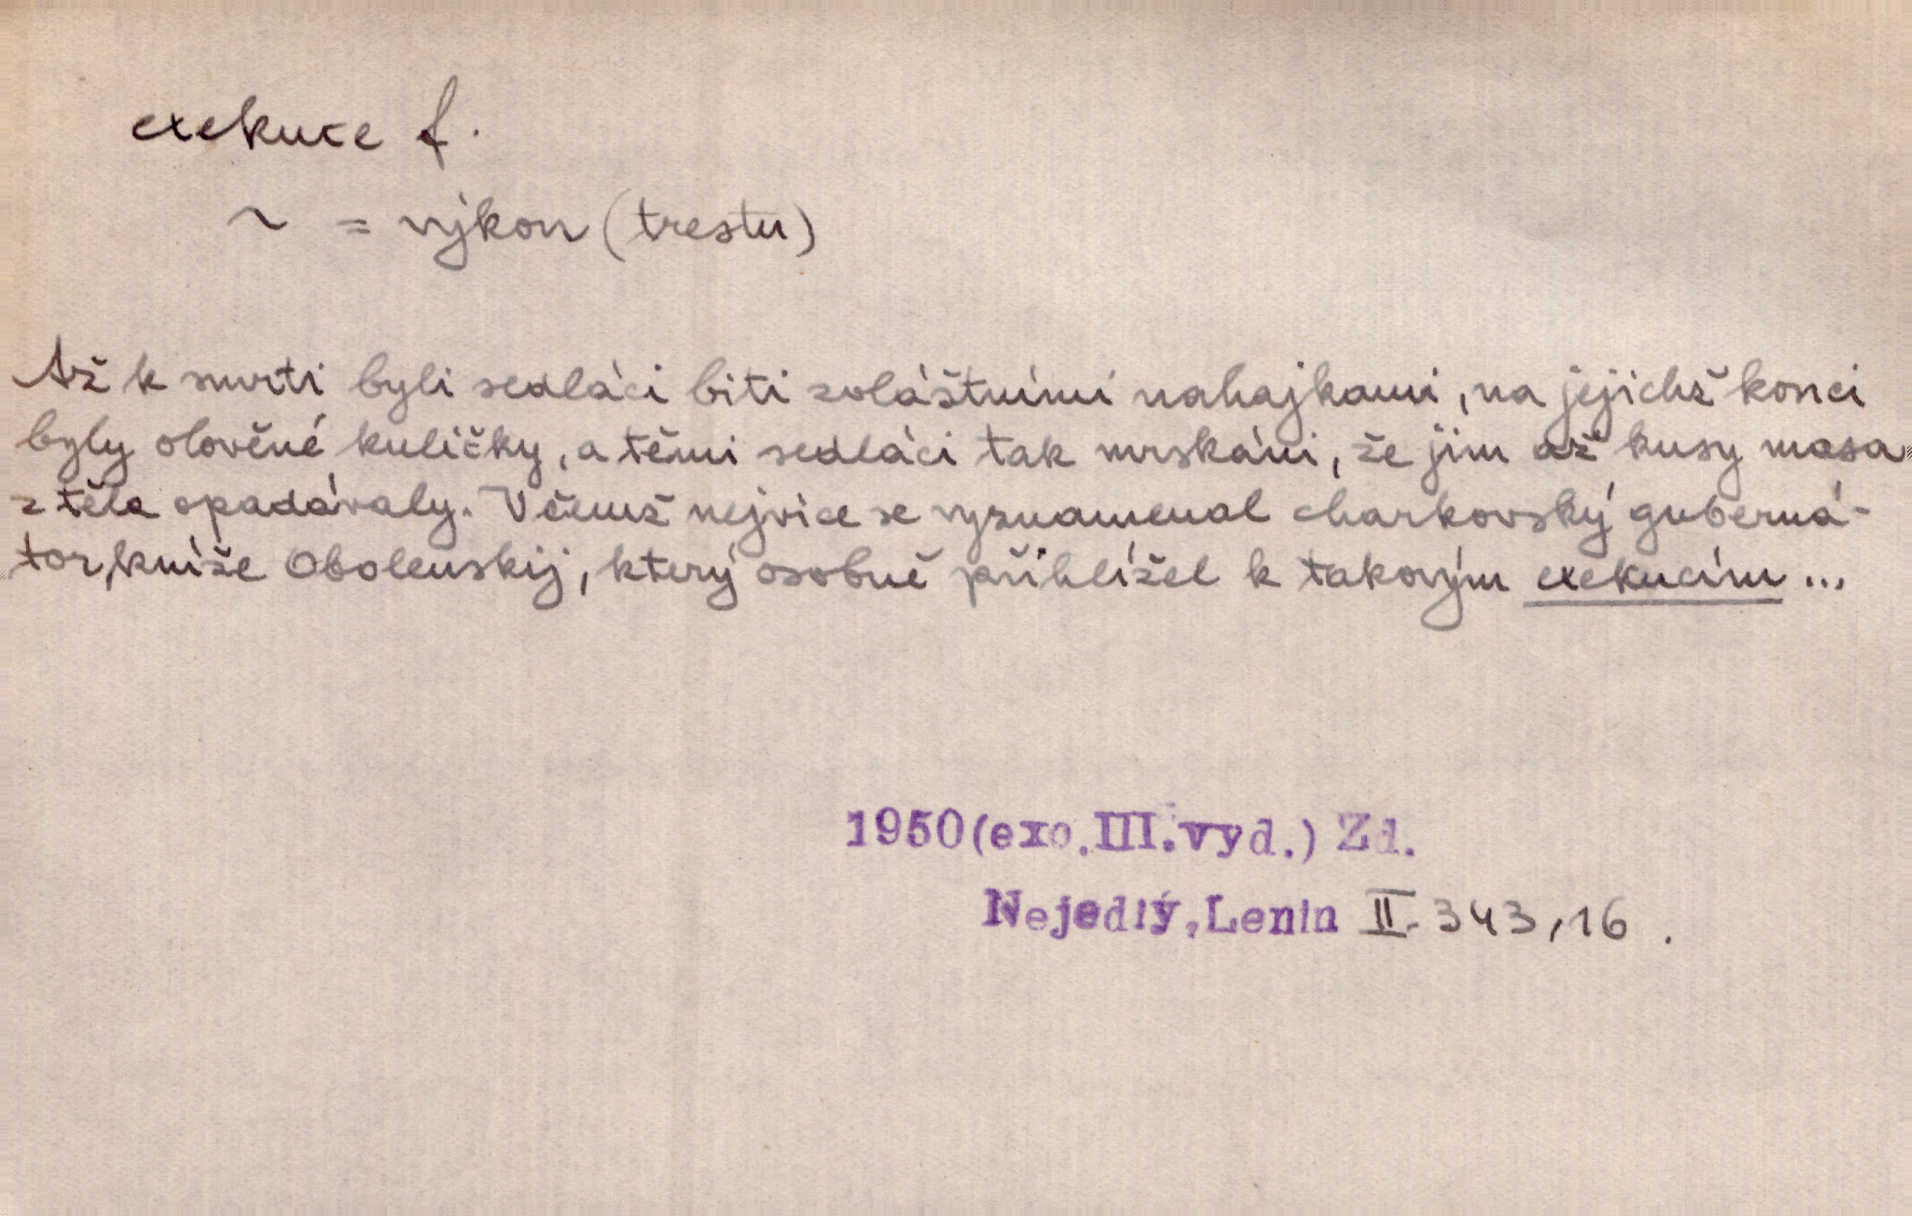 exekuce f.
~ = výkon (trestu)
Až k smrti byli sedláci biti zvláštními nahajkami, na jejichž konci
byly olověné kuličky, a těmi sedláci tak mrskáni, že jim až kusy masa
z těla opadávaly. V čemž nejvíce se vyznamenal charkovský guberná-
tor, kníže Obolenskij, který osobně přihlížel k takovým exekucím ...
1950 (exc. III. vyd.) Zd.
Nejedlý, Lenin II. 343, 16.